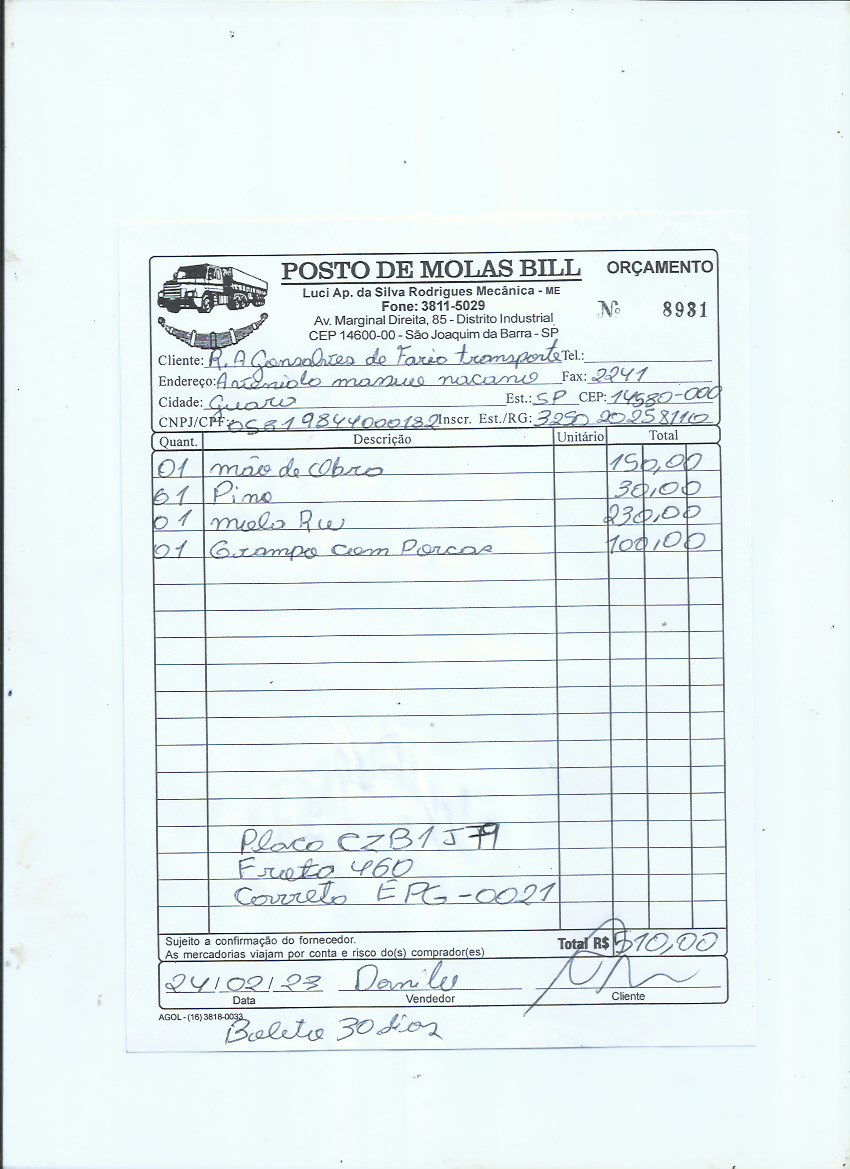 POSTO DE MOLAS BILL ORÇAMENTO
Luci Ap. da Silva Rodrigues Mecânica - ME
Fone: 3811-5029 Nº 8931
Av. Marginal Direita, 85 - Distrito Industrial
CEP 14600-00 - São Joaquim da Barra - SP
Cliente: R. A Gonsalves de Faria transporte Tel.:
Endereço: manuel Fax: 2241
Cidade: Guara Est.: SP CEP: 14580-000
CNPJ/CPF: 05819844000182 Inscr. Est./RG:
Quant. Descrição Unitário Total
01 mão de Obra 150,00
01 Pino 30,00
01 mola 230,00
01 Grampo com Porcas 100,00
Placa CZB1J79
Freta 460
Carreta EPG-0021
Sujeito a confirmação do fornecedor.
As mercadorias viajam por conta e risco do(s) comprador(es)
Total R$ 510,00
24/02/23 Danilu
Data Vendedor Cliente
AGOL - (16) 3818-0033
Boleto 30 dias